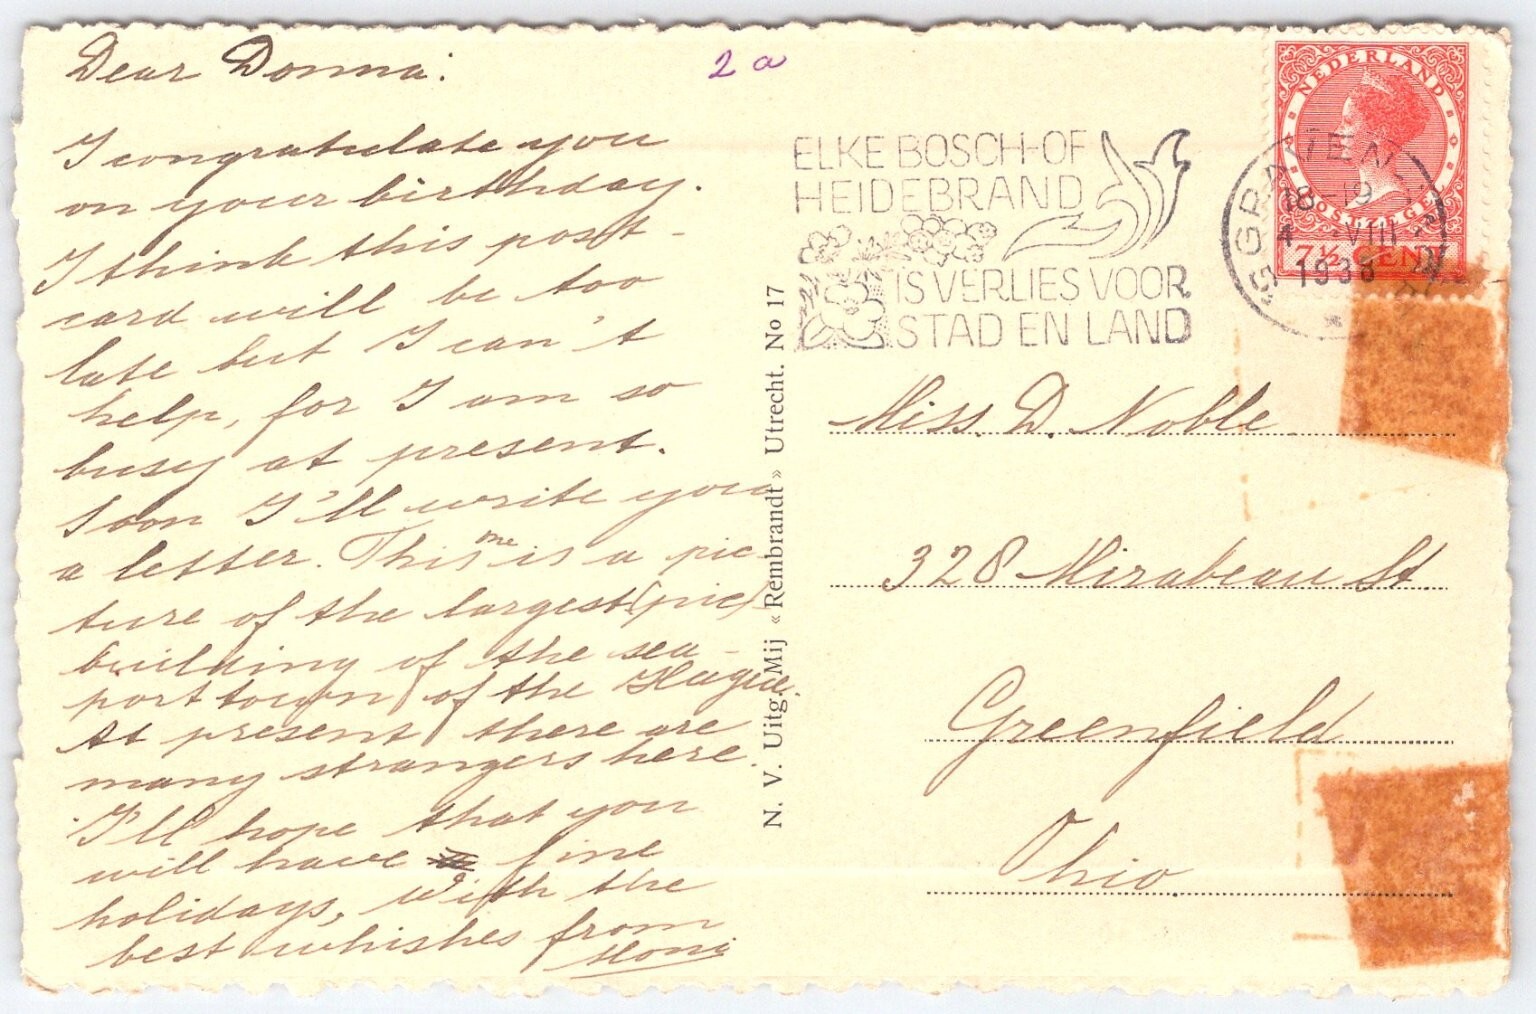 Dear Donna:
I congratulate you
on your birthday.
I think this post-
card will be too
late but I can't
help, for I am so
busy at present.
Soon I'll write you
a letter. This is a pic-
ture of the largest (pic)
building of the sea-
port town of the Hague.
At present there are
many strangers here.
I'll hope that you
will have fine
holidays, with the
best whishes from
2 a
N. V. Uitg. Mij « Rembrandt » Utrecht. No 17
ELKE BOSCH-OF
HEIDEBRAND
IS VERLIES VOOR
STAD EN LAND
NEDERLAND
POSTZEGEL
7½ CENT
18-19
4 -VIII
1938
Miss. D. Noble
328 Mirabeau St
Greenfield
Ohio.